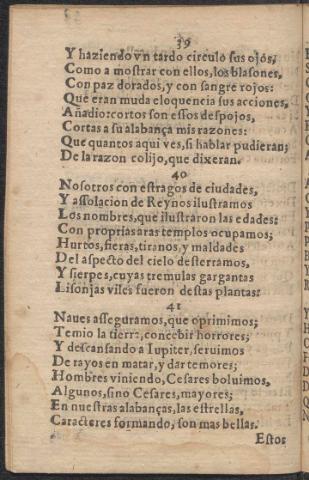 39
Y haziendo vn tardo circulo sus ojos,
Como a mostrar con ellos, los blasones,
Con paz dorados, y con sangre rojos:
Que eran muda eloquencia sus acciones,
Añadio: cortos son essos despojos,
Cortas a su alabança mis razones:
Que quantos aqui ves, si hablar pudieran;
De la razon colijo, que dixeran.
40
Nosotros con estragos de ciudades,
Y assolacion de Reynos ilustramos
Los nombres, que ilustraron las edades:
Con proprias aras templos ocupamos;
Hurtos, fieras, tiranos, y maldades
Del aspecto del cielo desterramos,
Y sierpes, cuyas tremulas gargantas
Lisonjas viles fueron destas plantas.
41
Naues asseguramos, que oprimimos;
Temio la tierra, concebir horrores;
Y descansando a Iupiter, seruimos
De rayos en matar, y dar temores;
Hombres viniendo, Cesares boluimos,
Algunos, sino Cesares, mayores;
En nuestras alabanças, las estrellas,
Caracteres formando, son mas bellas.
Estos